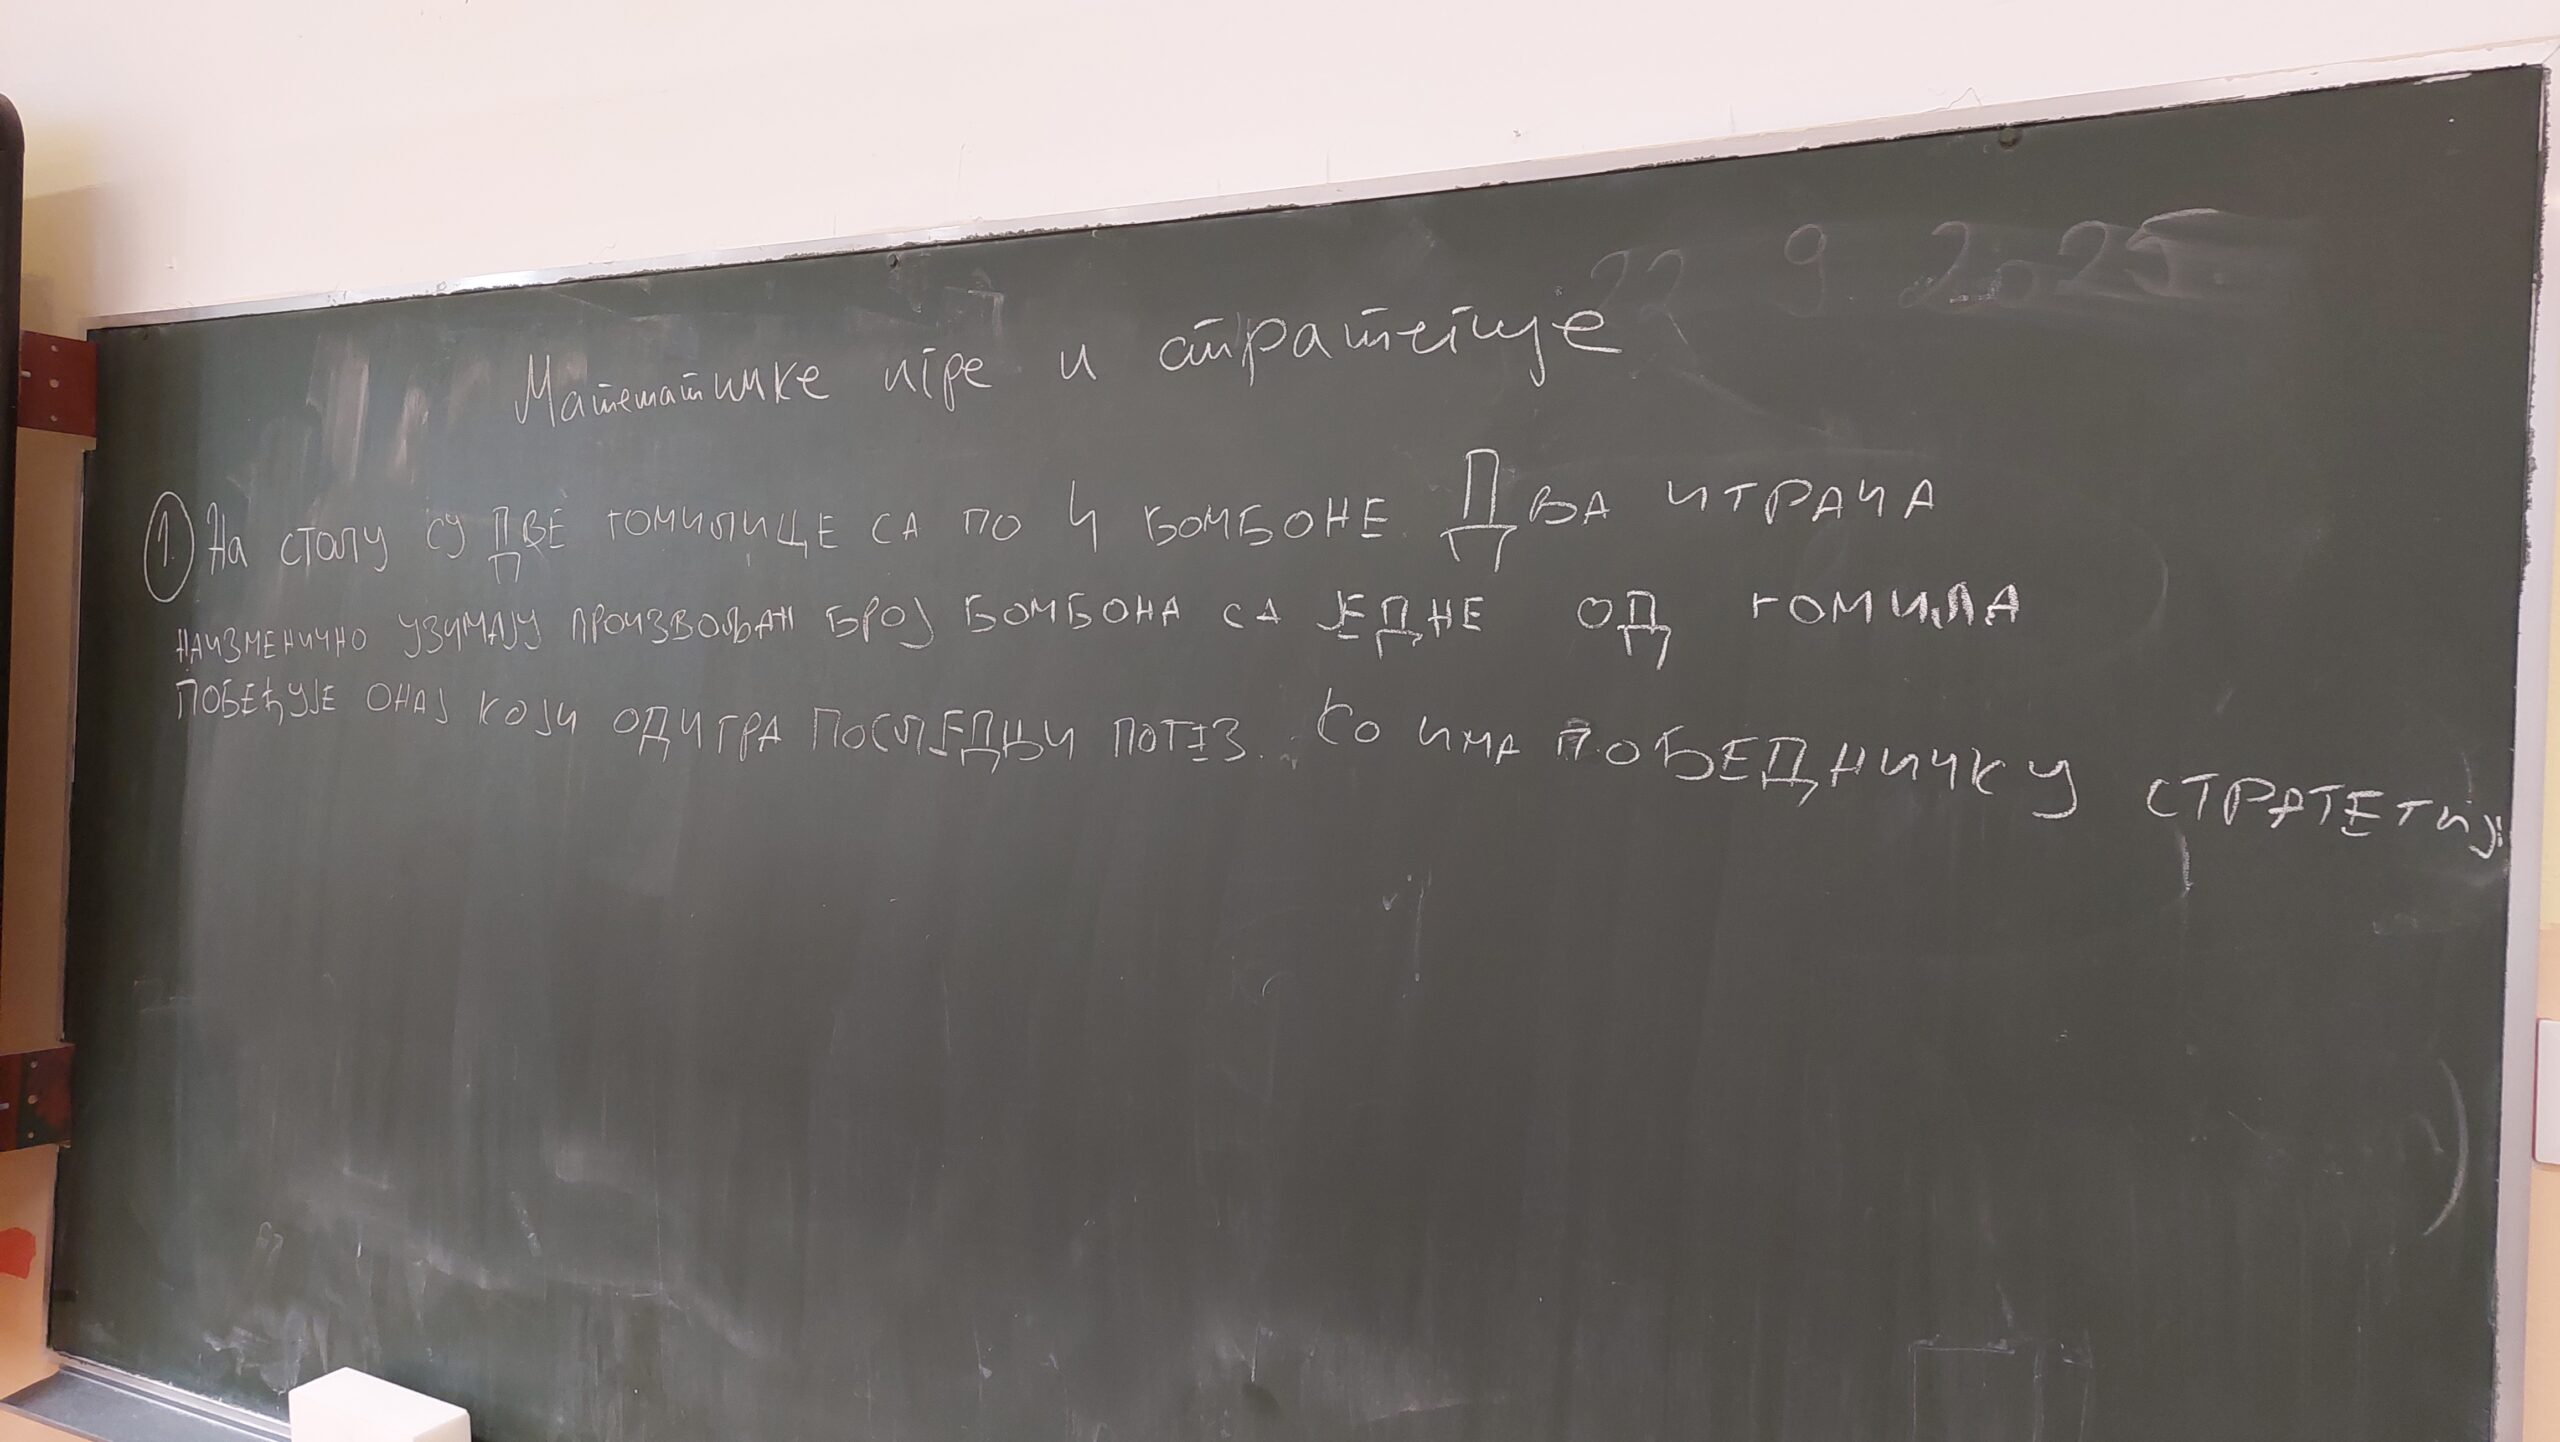 22 9 2025
Математичке игре и стратегије
1. На столу су ДВЕ ГОМИЛИЦЕ СА ПО 4 БОМБОНЕ. ДВА ИГРАЧА
НАИЗМЕНИЧНО УЗИМАЈУ ПРОИЗВОЉАН БРОЈ БОМБОНА СА ЈЕДНЕ ОД ГОМИЛА
ПОБЕЂУЈЕ ОНАЈ КОЈИ ОДИГРА ПОСЛЕДЊИ ПОТЕЗ. КО ИМА ПОБЕДНИЧКУ СТРАТЕГИЈ